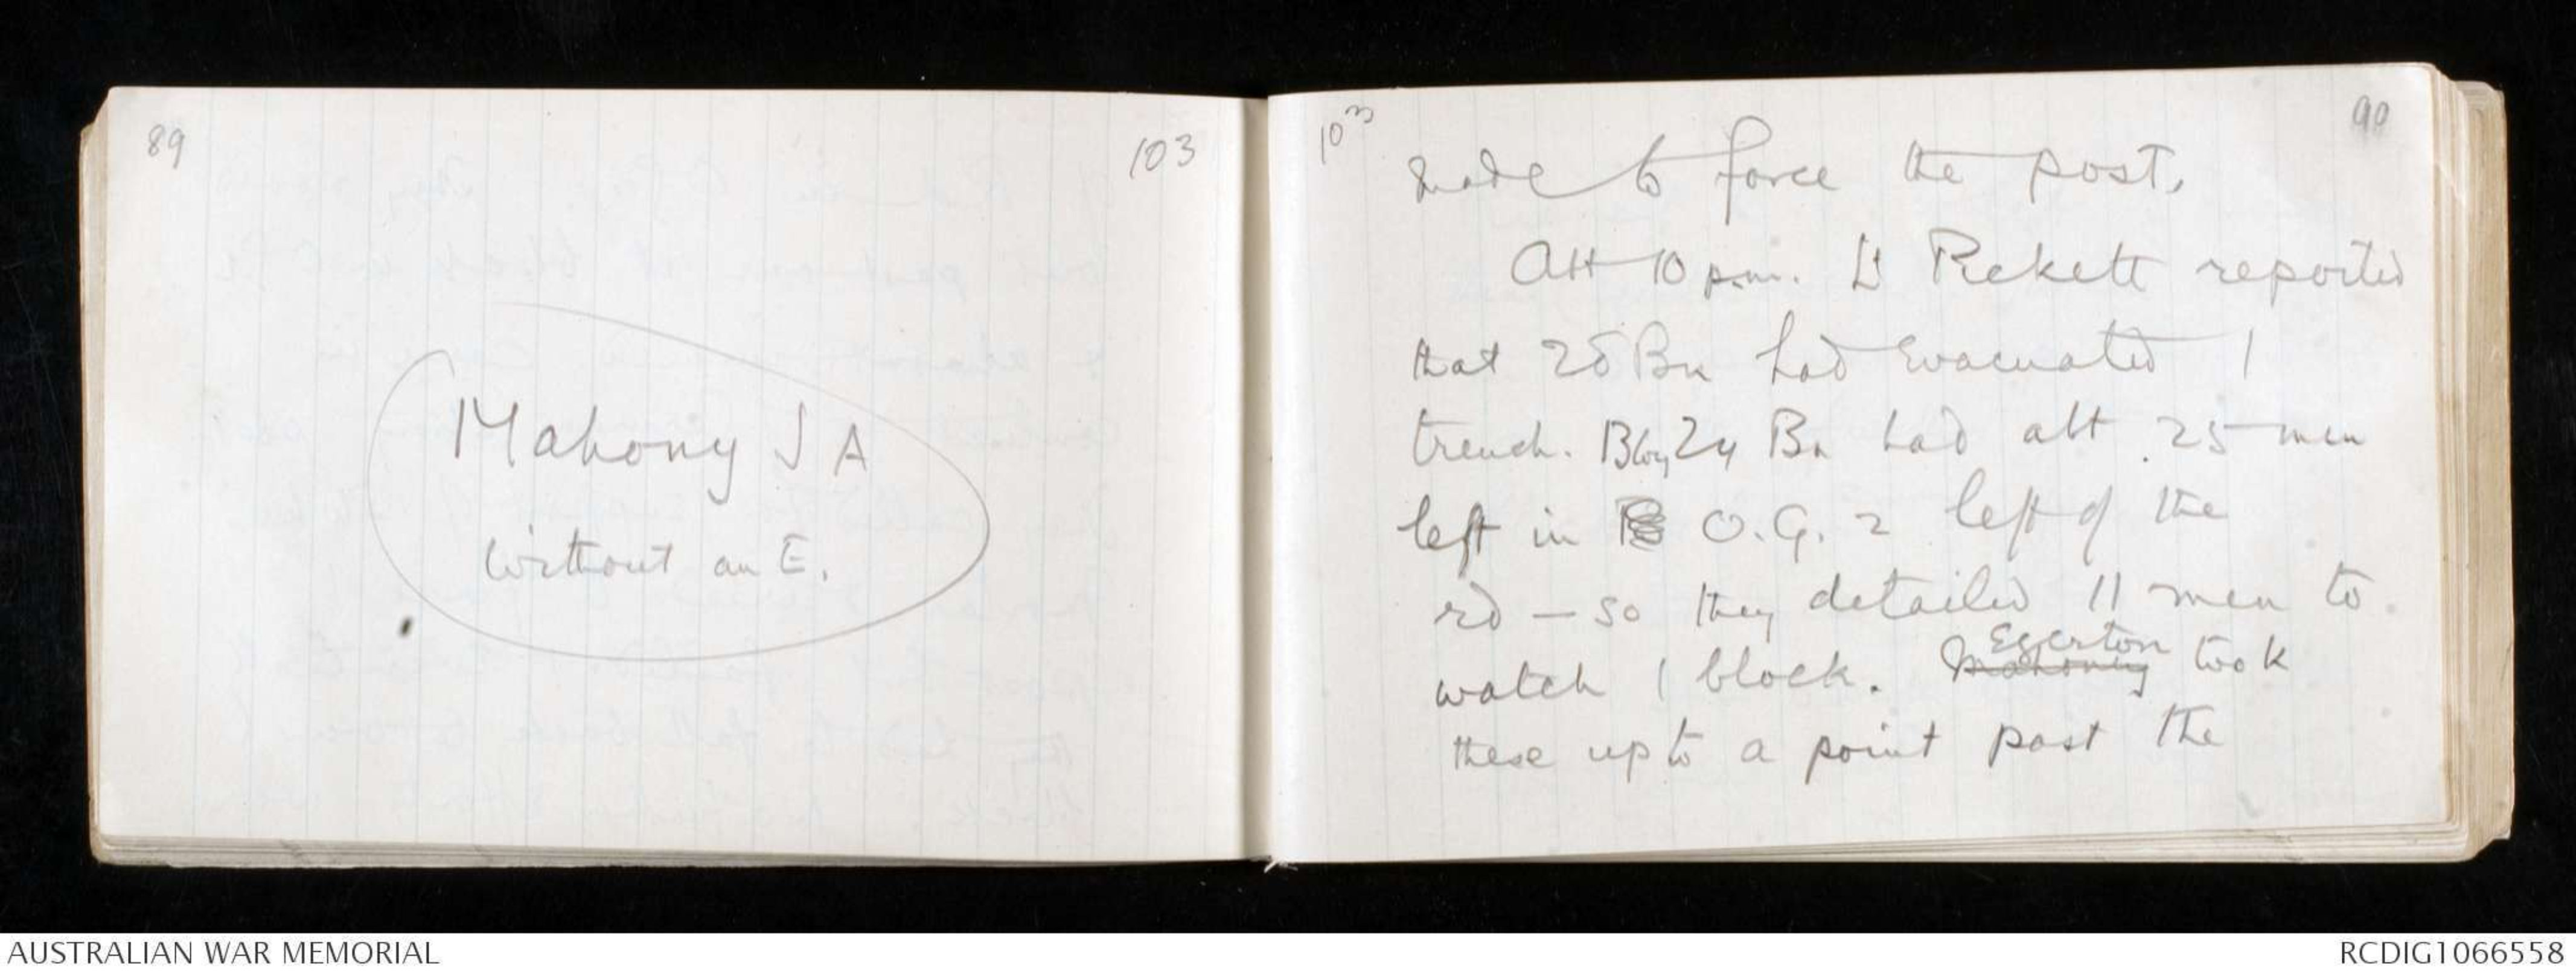 89
103
Mahony J A
without an E.
103
90
made to force the post.
Att 10 p.m. Lt Pickett reported
that 28 Bn had evacuated /
trench. B Coy 24 Bn had abt 25 men
left in O.G. 2 left of the
rd — so they detailed 11 men to
watch / block. Mahoney Egerton took
these up to a point past the
AUSTRALIAN WAR MEMORIAL
RCDIG1066558